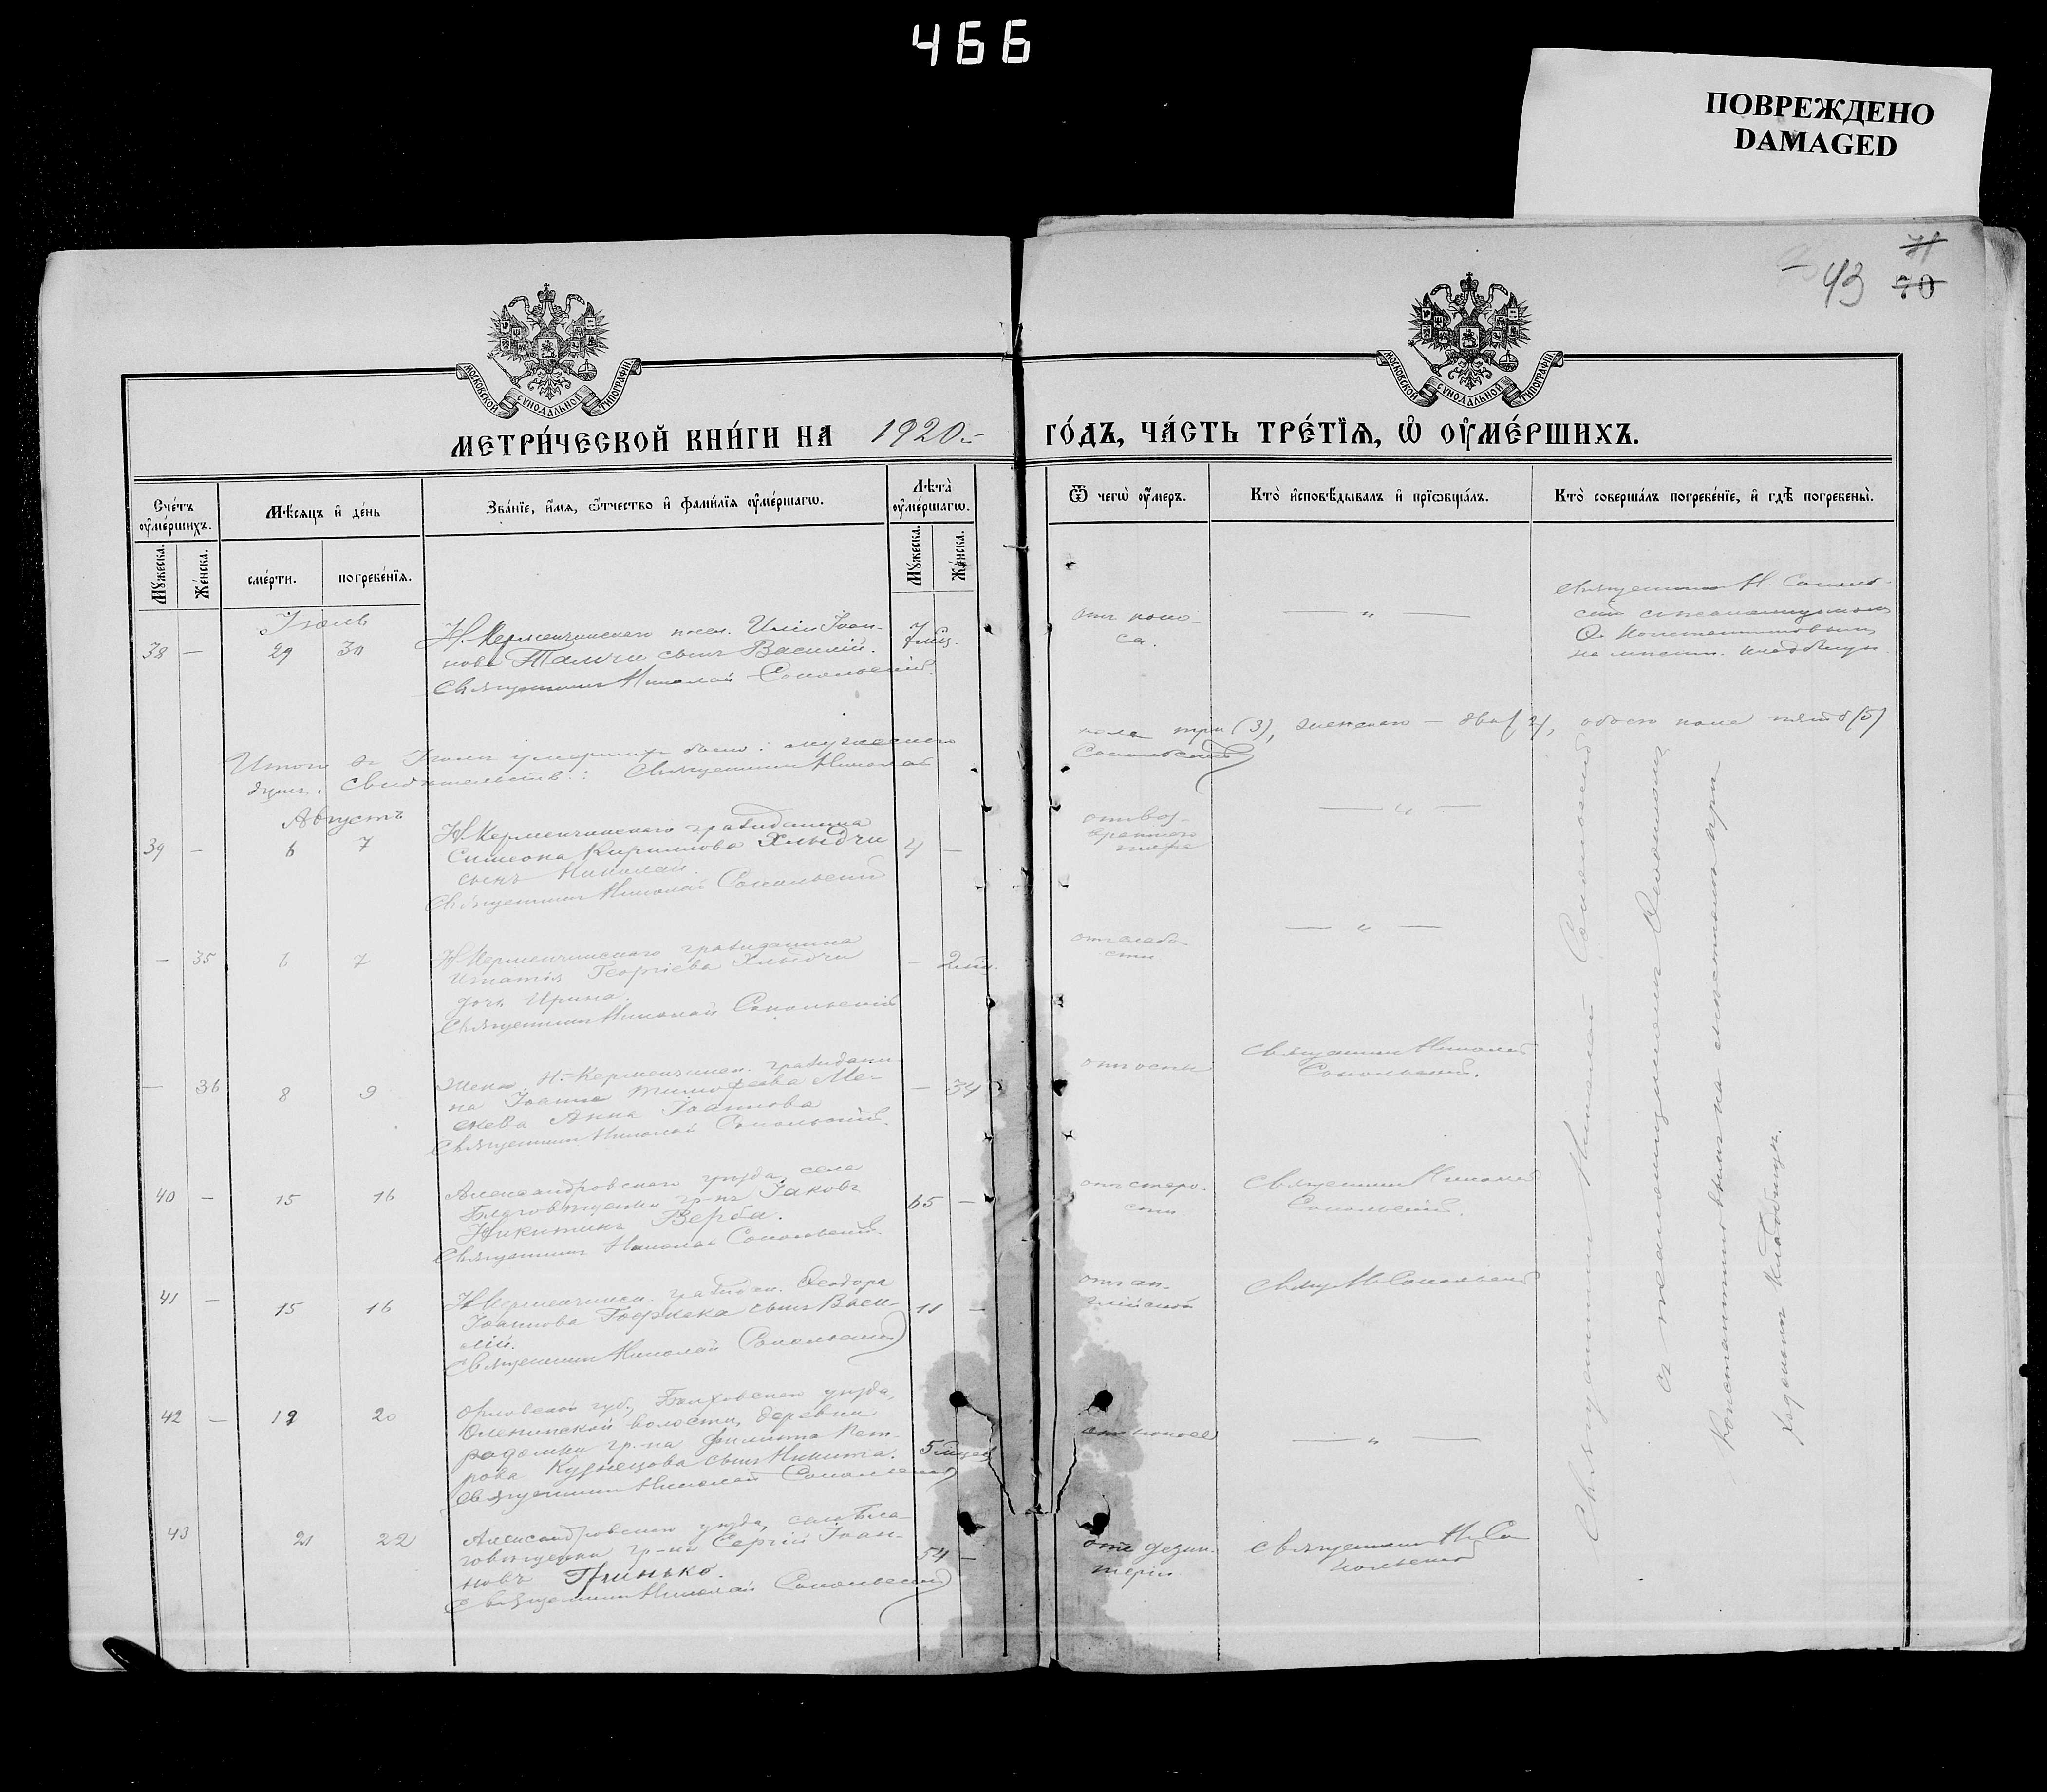 466
ПОВРЕЖДЕНО
DAMAGED
71
43 70
МОСКОВСКОЙ СѴНОДАЛЬНОЙ ТИПОГРАФІИ
МОСКОВСКОЙ СѴНОДАЛЬНОЙ ТИПОГРАФІИ
МЕТРИ́ЧЕСКОЙ КНИ́ГИ НА 1920.- ГО́ДЪ, ЧА́СТЬ ТРЕ́ТЇѦ, Ѡ҆ ОУ҆МЕ́РШИХЪ.
Сче́тъ оу҆ме́ршихъ.
Мѣ́сяцъ и҆ де́нь
Зва́нїе, и҆́мѧ, ѻ҆́тчество и҆ фами́лїѧ оу҆ме́ршагѡ.
Лѣ́та оу҆ме́ршагѡ.
Ѿ чегѡ̀ оу҆́меръ.
Кто̀ и҆сповѣ́дывалъ и҆ прїѡбща́лъ.
Кто̀ соверша́лъ погребе́нїе, и҆ гдѣ̀ погребены̀.
Мꙋ́жеска.
Же́нска.
сме́рти.
погребе́нїѧ.
Мꙋ́жеска.
Же́нска.
Іюль
38 — 29 30
Н. Керменчинскаго посел. Иліи Іоан-
нова Тамчи сынъ Василій.
Священникъ Николай Сокольскій.
7 мѣц.
отъ поно-
са.
— „ —
Священникъ Н. Соколь-
скій с псаломщикомъ
Ѳ. Константиновымъ
на мѣстн. кладбищѣ.
Итого въ Іюлѣ умершихъ было: мужескаго
пола три (3), женскаго — два (2), обоего пола пять (5)
душъ. Свидѣтельств.: Священникъ Николай
Сокольскій
Августъ
39 — 6 7
Н. Керменчинскаго гражданина
Симеона Кириллова Хлыдчи
сынъ Николай.
Священникъ Николай Сокольскій
4 —
отъ воз-
вратнаго
тифа
— „ —
— 35 6 7
Н. Керменчинского гражданина
Игнатія Георгіева Хлыдчи
дочь Ирина.
Священникъ Николай Сокольскій
— 2 мѣс.
отъ слабо-
сти.
— „ —
— 36 8 9
Жена Н.-Керменчинск. граждани-
на Іоанна Тимофеева Ме-
скева Анна Іоаннова
Священникъ Николай Сокольскій.
— 34
отъ оспы
Священникъ Николай
Сокольскій.
40 — 15 16
Александровского уѣзда, села
Благовѣщенки гр-нъ Іаковъ
Никитинъ Верба.
Священникъ Николай Сокольскій.
65 —
отъ старо-
сти
Священникъ Николай
Сокольскій.
41 — 15 16
Н. Керменчинск. граждан. Ѳеодора
Іоаннова сынъ Васи-
лій.
Священникъ Николай Сокольскій
11 —
отъ ан-
глійской
Свящ. Н. Сокольскій
42 — 19 20
Орловской губ., Болховского уѣзда,
волости, деревни
гр-на Филиппа Пет-
рова Кузнецова сынъ Никита.
Священникъ Николай Сокольскій
5 мѣсяц.
отъ поноса
— „ —
43 21 22
Александровского уѣзда, села Бла-
говѣщенки гр-нъ Сергій Іоан-
новъ Гринько.
Священникъ Николай Сокольскій
54 —
отъ дезин-
теріи
Священникъ Н. Со-
кольскій
Священникъ Николай Сокольскій
с псаломщикомъ
Константиновымъ на мѣстномъ при-
ходскомъ кладбищѣ.